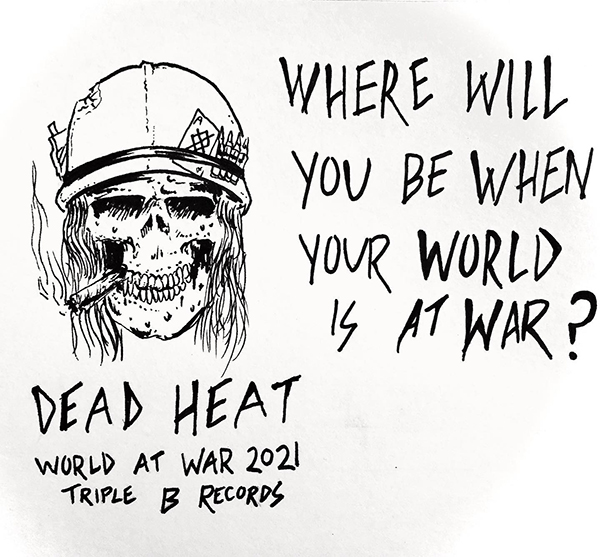 WHERE WILL
YOU BE WHEN
YOUR WORLD
IS AT WAR?
DEAD HEAT
WORLD AT WAR 2021
TRIPLE B RECORDS